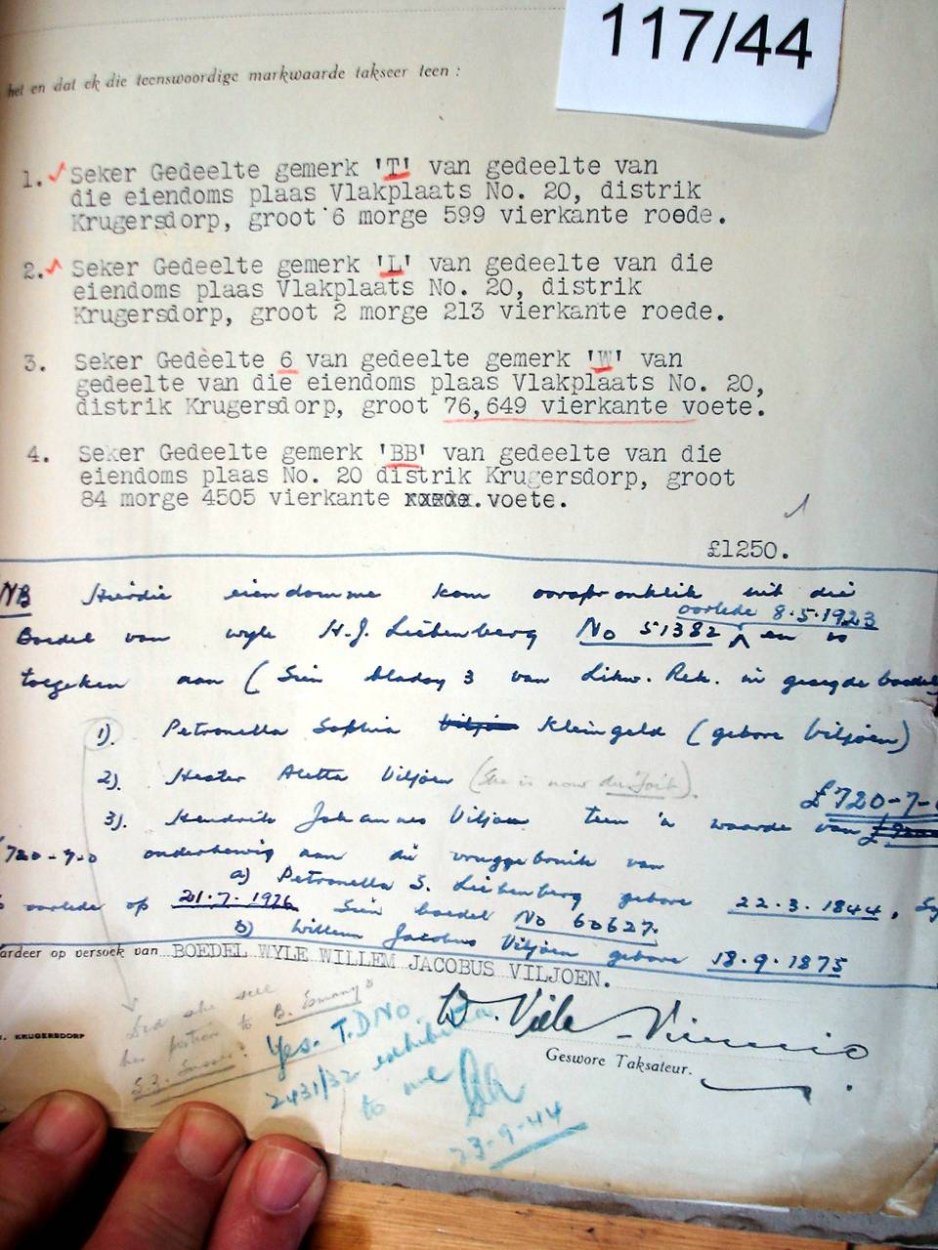 117/44
het en dat ek die teenswoordige markwaarde takseer teen :
1. Seker Gedeelte gemerk 'T' van gedeelte van
die eiendoms plaas Vlakplaats No. 20, distrik
Krugersdorp, groot 6 morge 599 vierkante roede.
2. Seker Gedeelte gemerk 'L' van gedeelte van die
eiendoms plaas Vlakplaats No. 20, distrik
Krugersdorp, groot 2 morge 213 vierkante roede.
3. Seker Gedeelte 6 van gedeelte gemerk 'W' van
gedeelte van die eiendoms plaas Vlakplaats No. 20,
distrik Krugersdorp, groot 76,649 vierkante voete.
4. Seker Gedeelte gemerk 'BB' van gedeelte van die
eiendoms plaas No. 20 distrik Krugersdorp, groot
84 morge 4505 vierkante roede. voete.
£1250.
NB Hierdie eiendomme kom oorspronklik uit die
oorlede 8.5.1923
Boedel van wyle H.J. Liebenberg No 51382 en is
toegeken aan (Sien bladsy 3 van Likw. Rek. in gesegde boedel
1). Petronella Sophia Viljoen Kleingeld (gebore Viljoen)
2). Hester Aletta Viljoen (She is now du Toit).
£720-7-
3). Hendrik Johannes Viljoen teen 'n waarde van
720-7-0 onderhewig aan die vruggebruik van
a) Petronella S. Liebenberg gebore 22.3.1844, Sy
is oorlede op 21.7.1926 Sien boedel No 60627.
b) Willem Jacobus Viljoen gebore 18.9.1875
ardeer op versoek van BOEDEL WYLE WILLEM JACOBUS VILJOEN.
Did she sell
her portion to B. Esmany?
KRUGERSDORP
Yes. T.D No
2431/32 exhibited
to me
23-9-44
Geswore Taksateur.